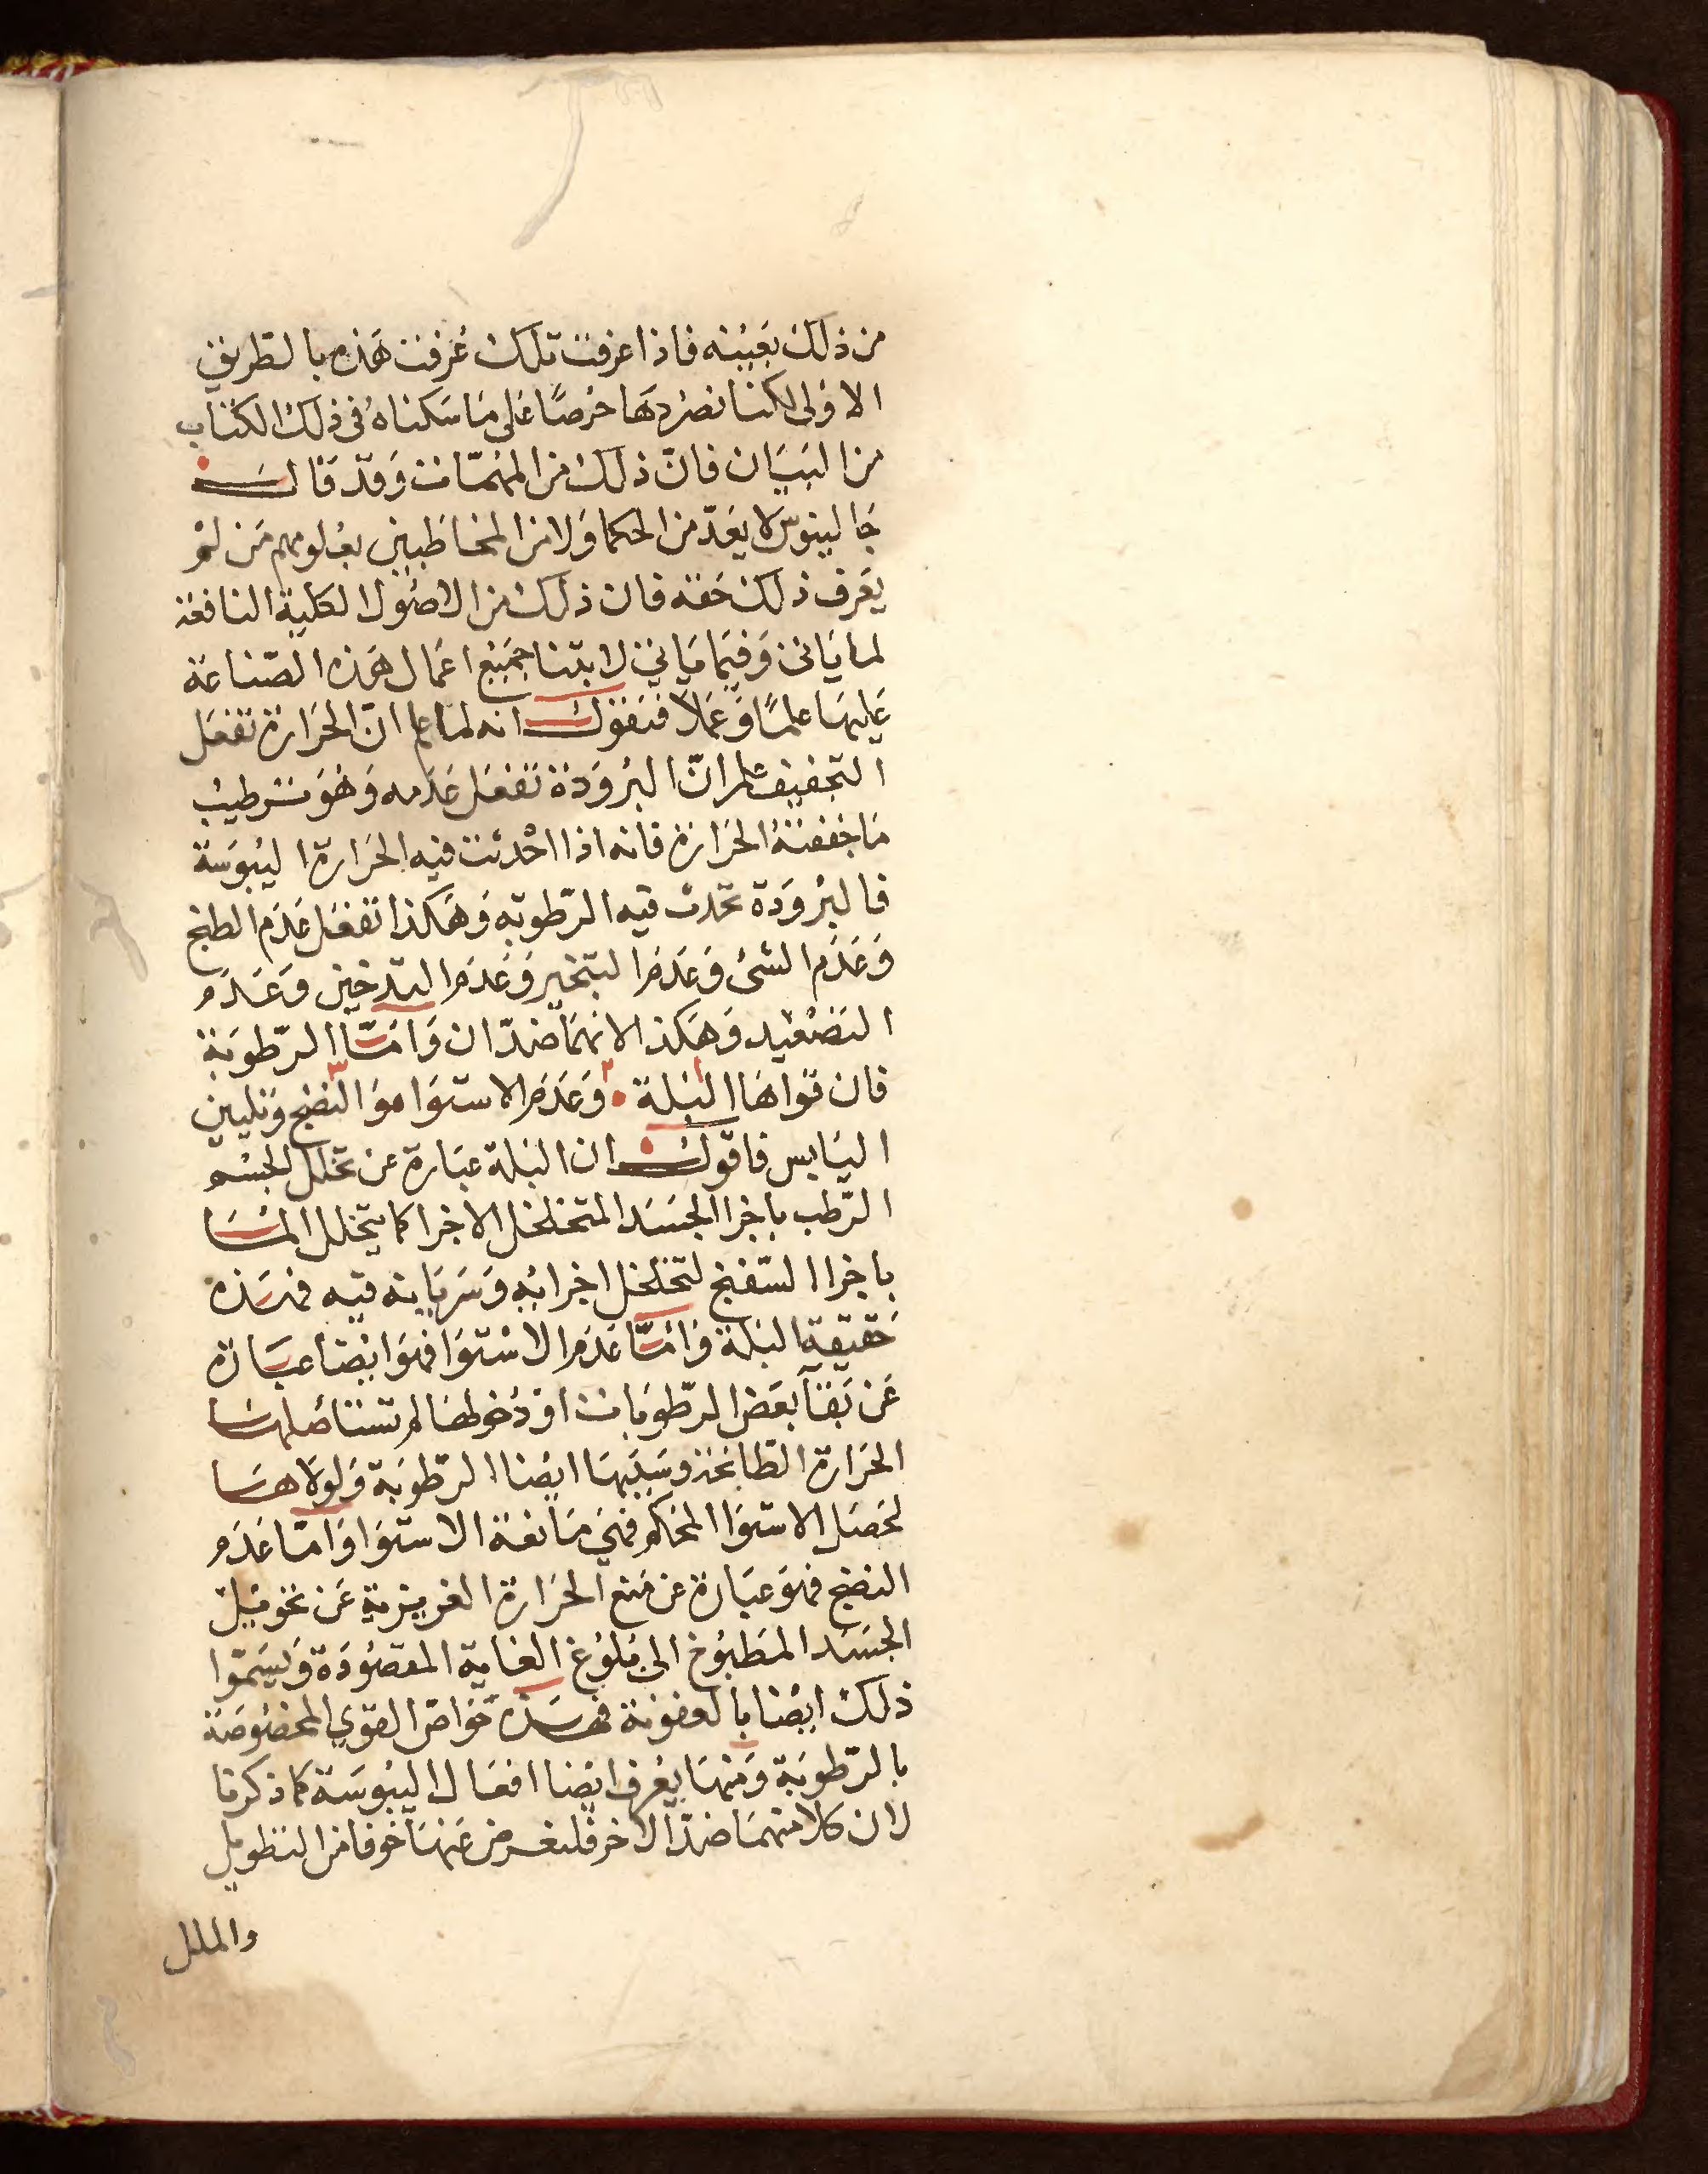 من ذلك بعينه فاذا عرفت تلك عرفت هذه بالطريق
الاولى لكننا نصردها حرصًا على ما سكناه فى ذلك الكتاب
من البيان فانّ ذلك من المهمّات وقد قال
جالينوس لا يعدّ من الحكما ولا من المخاطبين بعلومهم من لمْ
يعرف ذلك حقه فان ذلك من الاصول الكلية النافعة
لما ياتى وفيما ياتى لابتنا جميع اعمال هذه الصّناعة
عليها علمًا وعملًا فنقول انه لما علم انّ الحرارة تفعل
التجفيف علم انّ البرودة تفعل عدمه وهو ترطيب
ما جففتهُ الحرارة فانه اذا احْدثت فيه الحرارة اليبوسة
فالبرودة تحدث فيه الرّطوبه وهكذا تفعل عدم الطبخ
وعدم الشى وعدم التبخير وعدم التدخين وعدم
التصعيد وهكذا لانهما ضدّان وامّا الرّطوبة
فان قواها البلة وعدم الاستوا مو النضج وتليين
اليابس فاقول ان البلة عبارة عن تخلل الجسْم
الرّطب باجزا الجسد المتخلخل الاجزا كما يتخلل الما
باجزا السّفنج لتخلخل اجزايه وسريانه فيه فهذه
حقيقة البلة وامّا عدم الاسْتوا فهو ايضا عبارة
عن بقآ بعض الرّطوبات او دخولها لم تستاصلها
الحرارة الطابخة وسببها ايضا الرّطوبة ولولاها
لحصل الاستوا المحكم فهى مانعة الاستوا وامّا عدم
النضج فهو عبارة عن منع الحرارة الغريزية عن تحويل
الجسد المطبوخ الى بلوغ الغاية المقصودة ويسمّوا
ذلك ايضا بالعفونة فهذه خواصّ القوي المخصوصة
بالرّطوبة ومنها يعْرف ايضا افعال اليبوسة كما ذكرنا
لان كلا منهما ضدّ الاخر فلنعرض عنها خوفا من التطويل
والملل